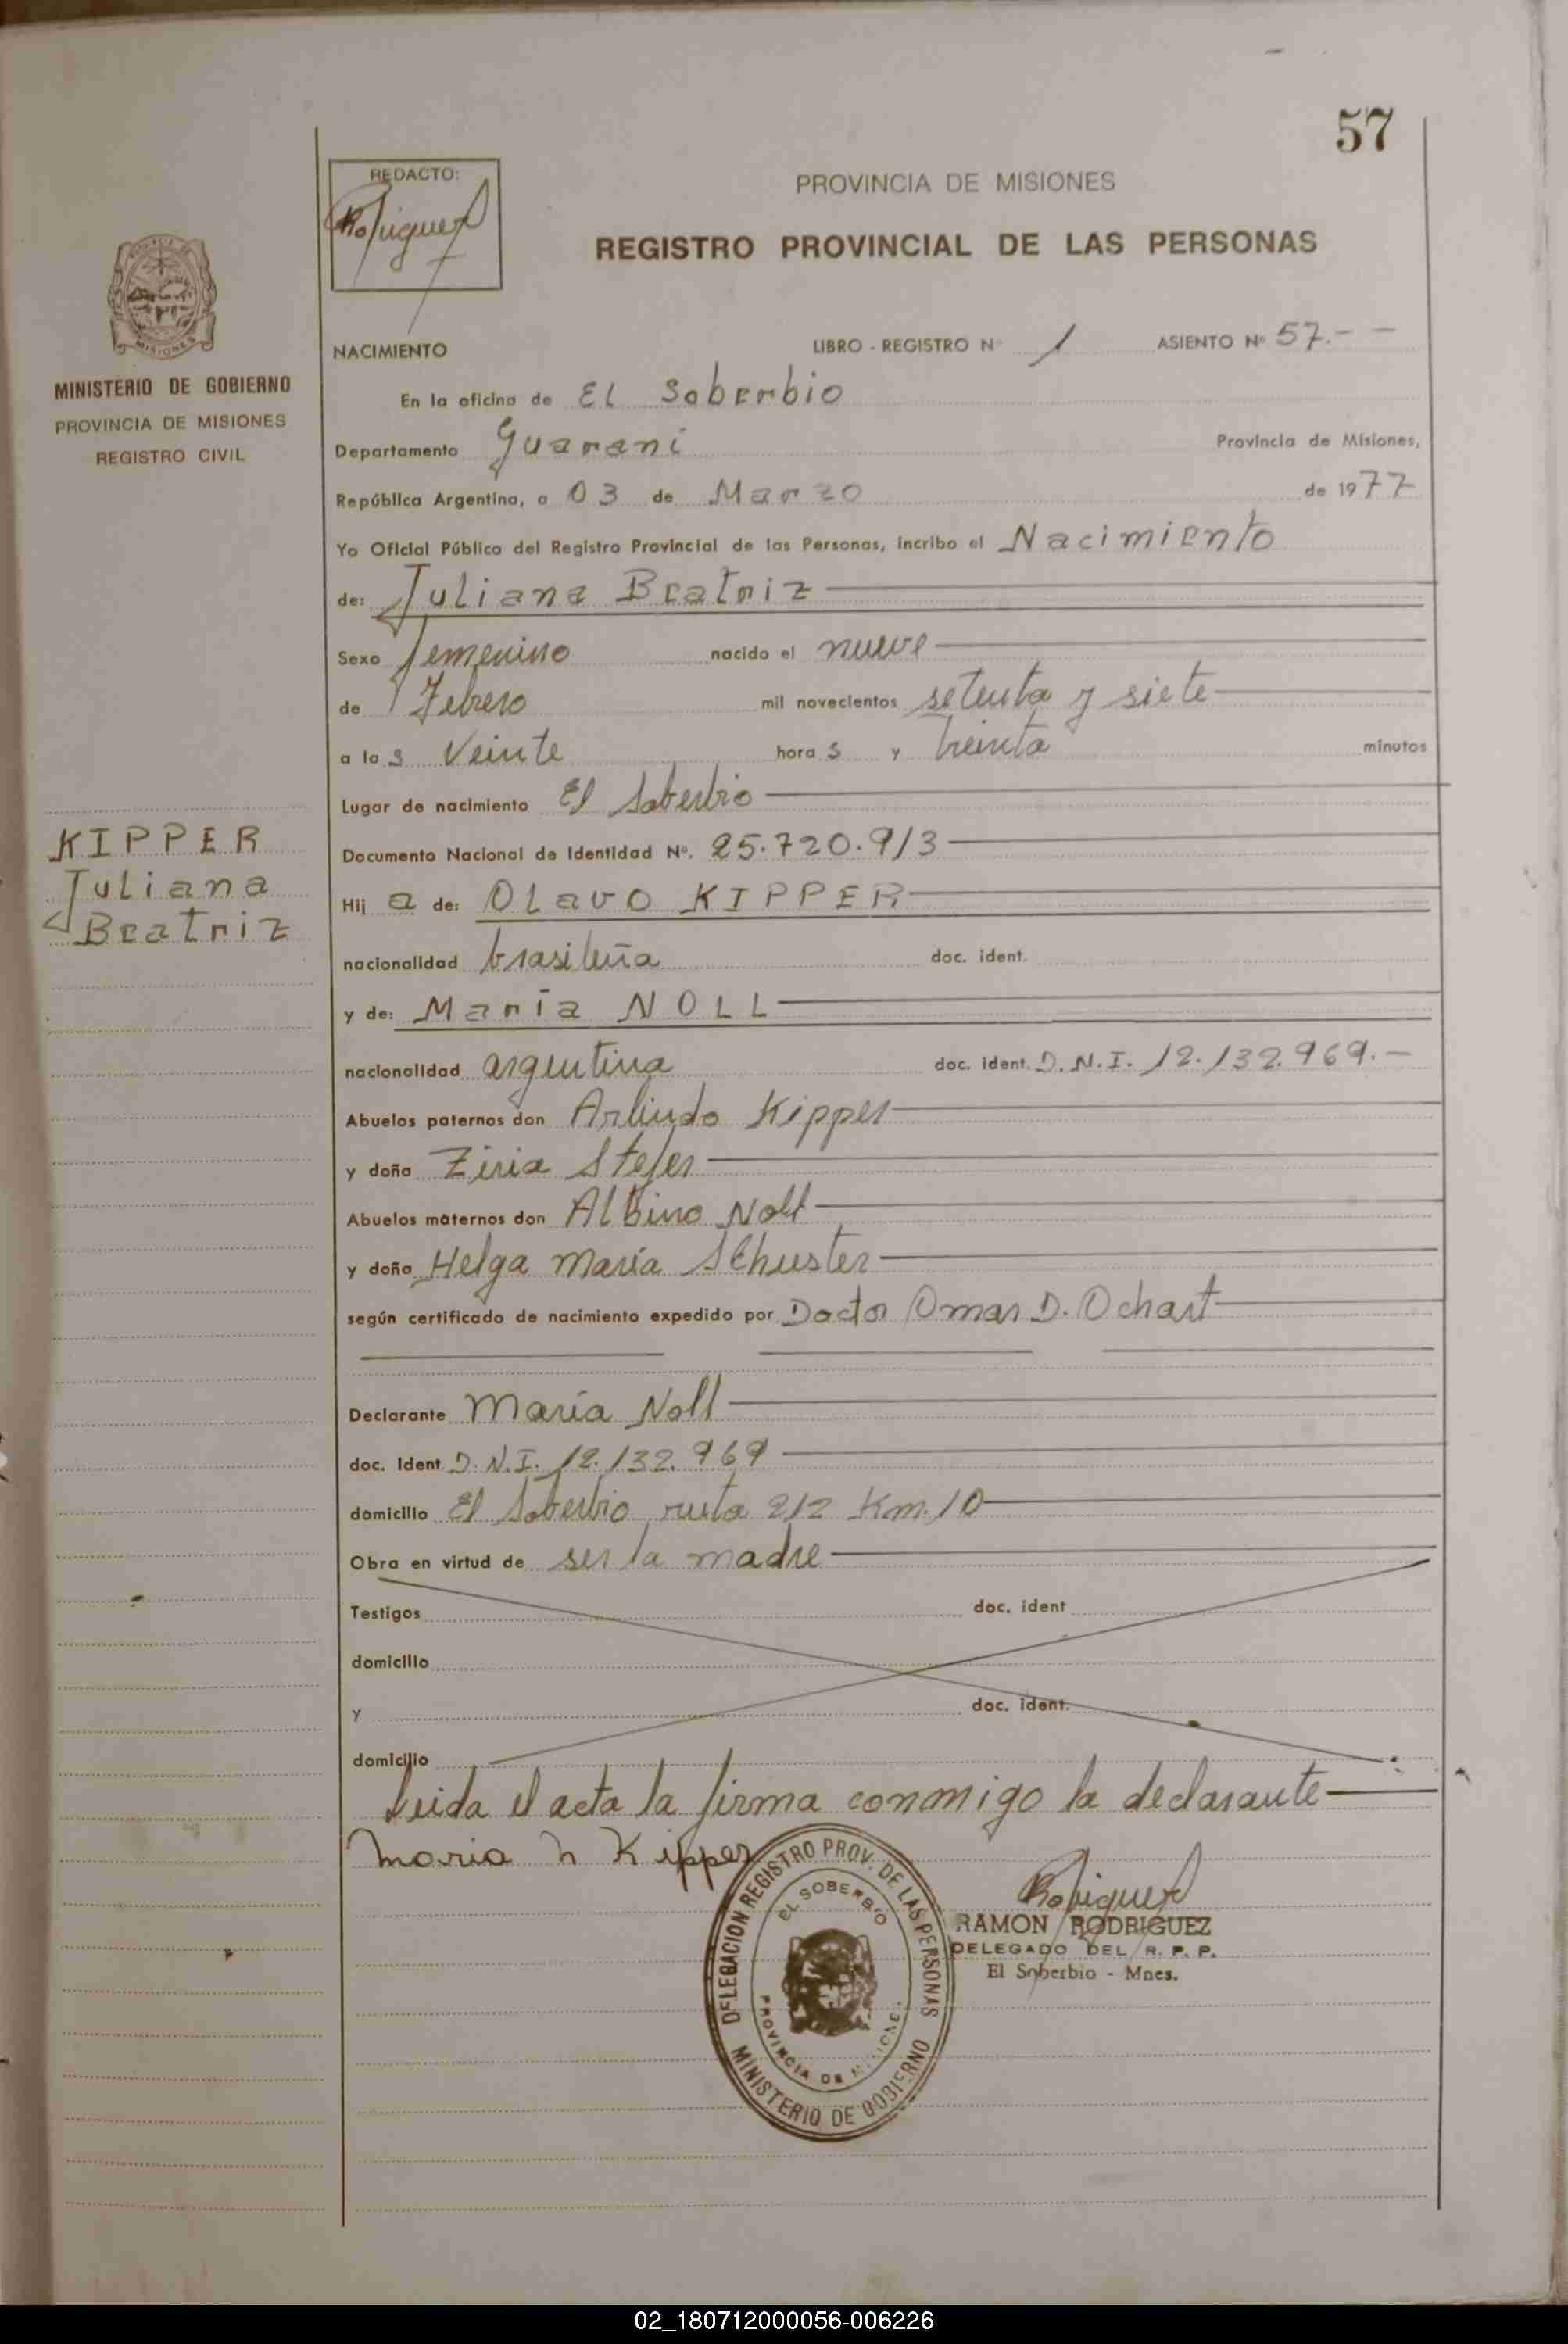 57
REDACTO:
Rodriguez
PROVINCIA DE MISIONES
REGISTRO PROVINCIAL DE LAS PERSONAS
MISIONES
MINISTERIO DE GOBIERNO
PROVINCIA DE MISIONES
REGISTRO CIVIL
NACIMIENTO LIBRO - REGISTRO Nº 1 ASIENTO Nº 57.- -
En la oficina de El Soberbio
Departamento Guaraní Provincia de Misiones,
República Argentina, a 03 de Marzo de 1977
Yo Oficial Público del Registro Provincial de las Personas, incribo el Nacimiento
de: Juliana Beatriz
Sexo femenino nacido el nueve
de Febrero mil novecientos setenta y siete
a las veinte horas y treinta minutos
Lugar de nacimiento El Soberbio
KIPPER
Juliana
Beatriz
Documento Nacional de Identidad Nº. 25.720.913
Hij a de: Olavo KIPPER
nacionalidad brasileña doc. ident.
y de: María NOLL
nacionalidad argentina doc. ident. D.N.I. 12.132.969.-
Abuelos paternos don Arlindo Kipper
y doña Ziria Stefer
Abuelos maternos don Albino Noll
y doña Helga María Schuster
según certificado de nacimiento expedido por Doctor Omar D. Ochart
Declarante María Noll
doc. Ident D.N.I. 12.132.969
domicilio El Soberbio ruta 212 Km. 10
Obra en virtud de ser la madre
Testigos doc. ident
domicilio
y doc. ident.
domicilio
Leida el acta la firma conmigo la declarante
Maria N Kipper
Rodriguez
RAMON RODRIGUEZ
DELEGADO DEL R. P. P.
El Soberbio - Mnes.
DELEGACION REGISTRO PROV. DE LAS PERSONAS
EL SOBERBIO
PROVINCIA DE MISIONES
MINISTERIO DE GOBIERNO
02_180712000056-006226